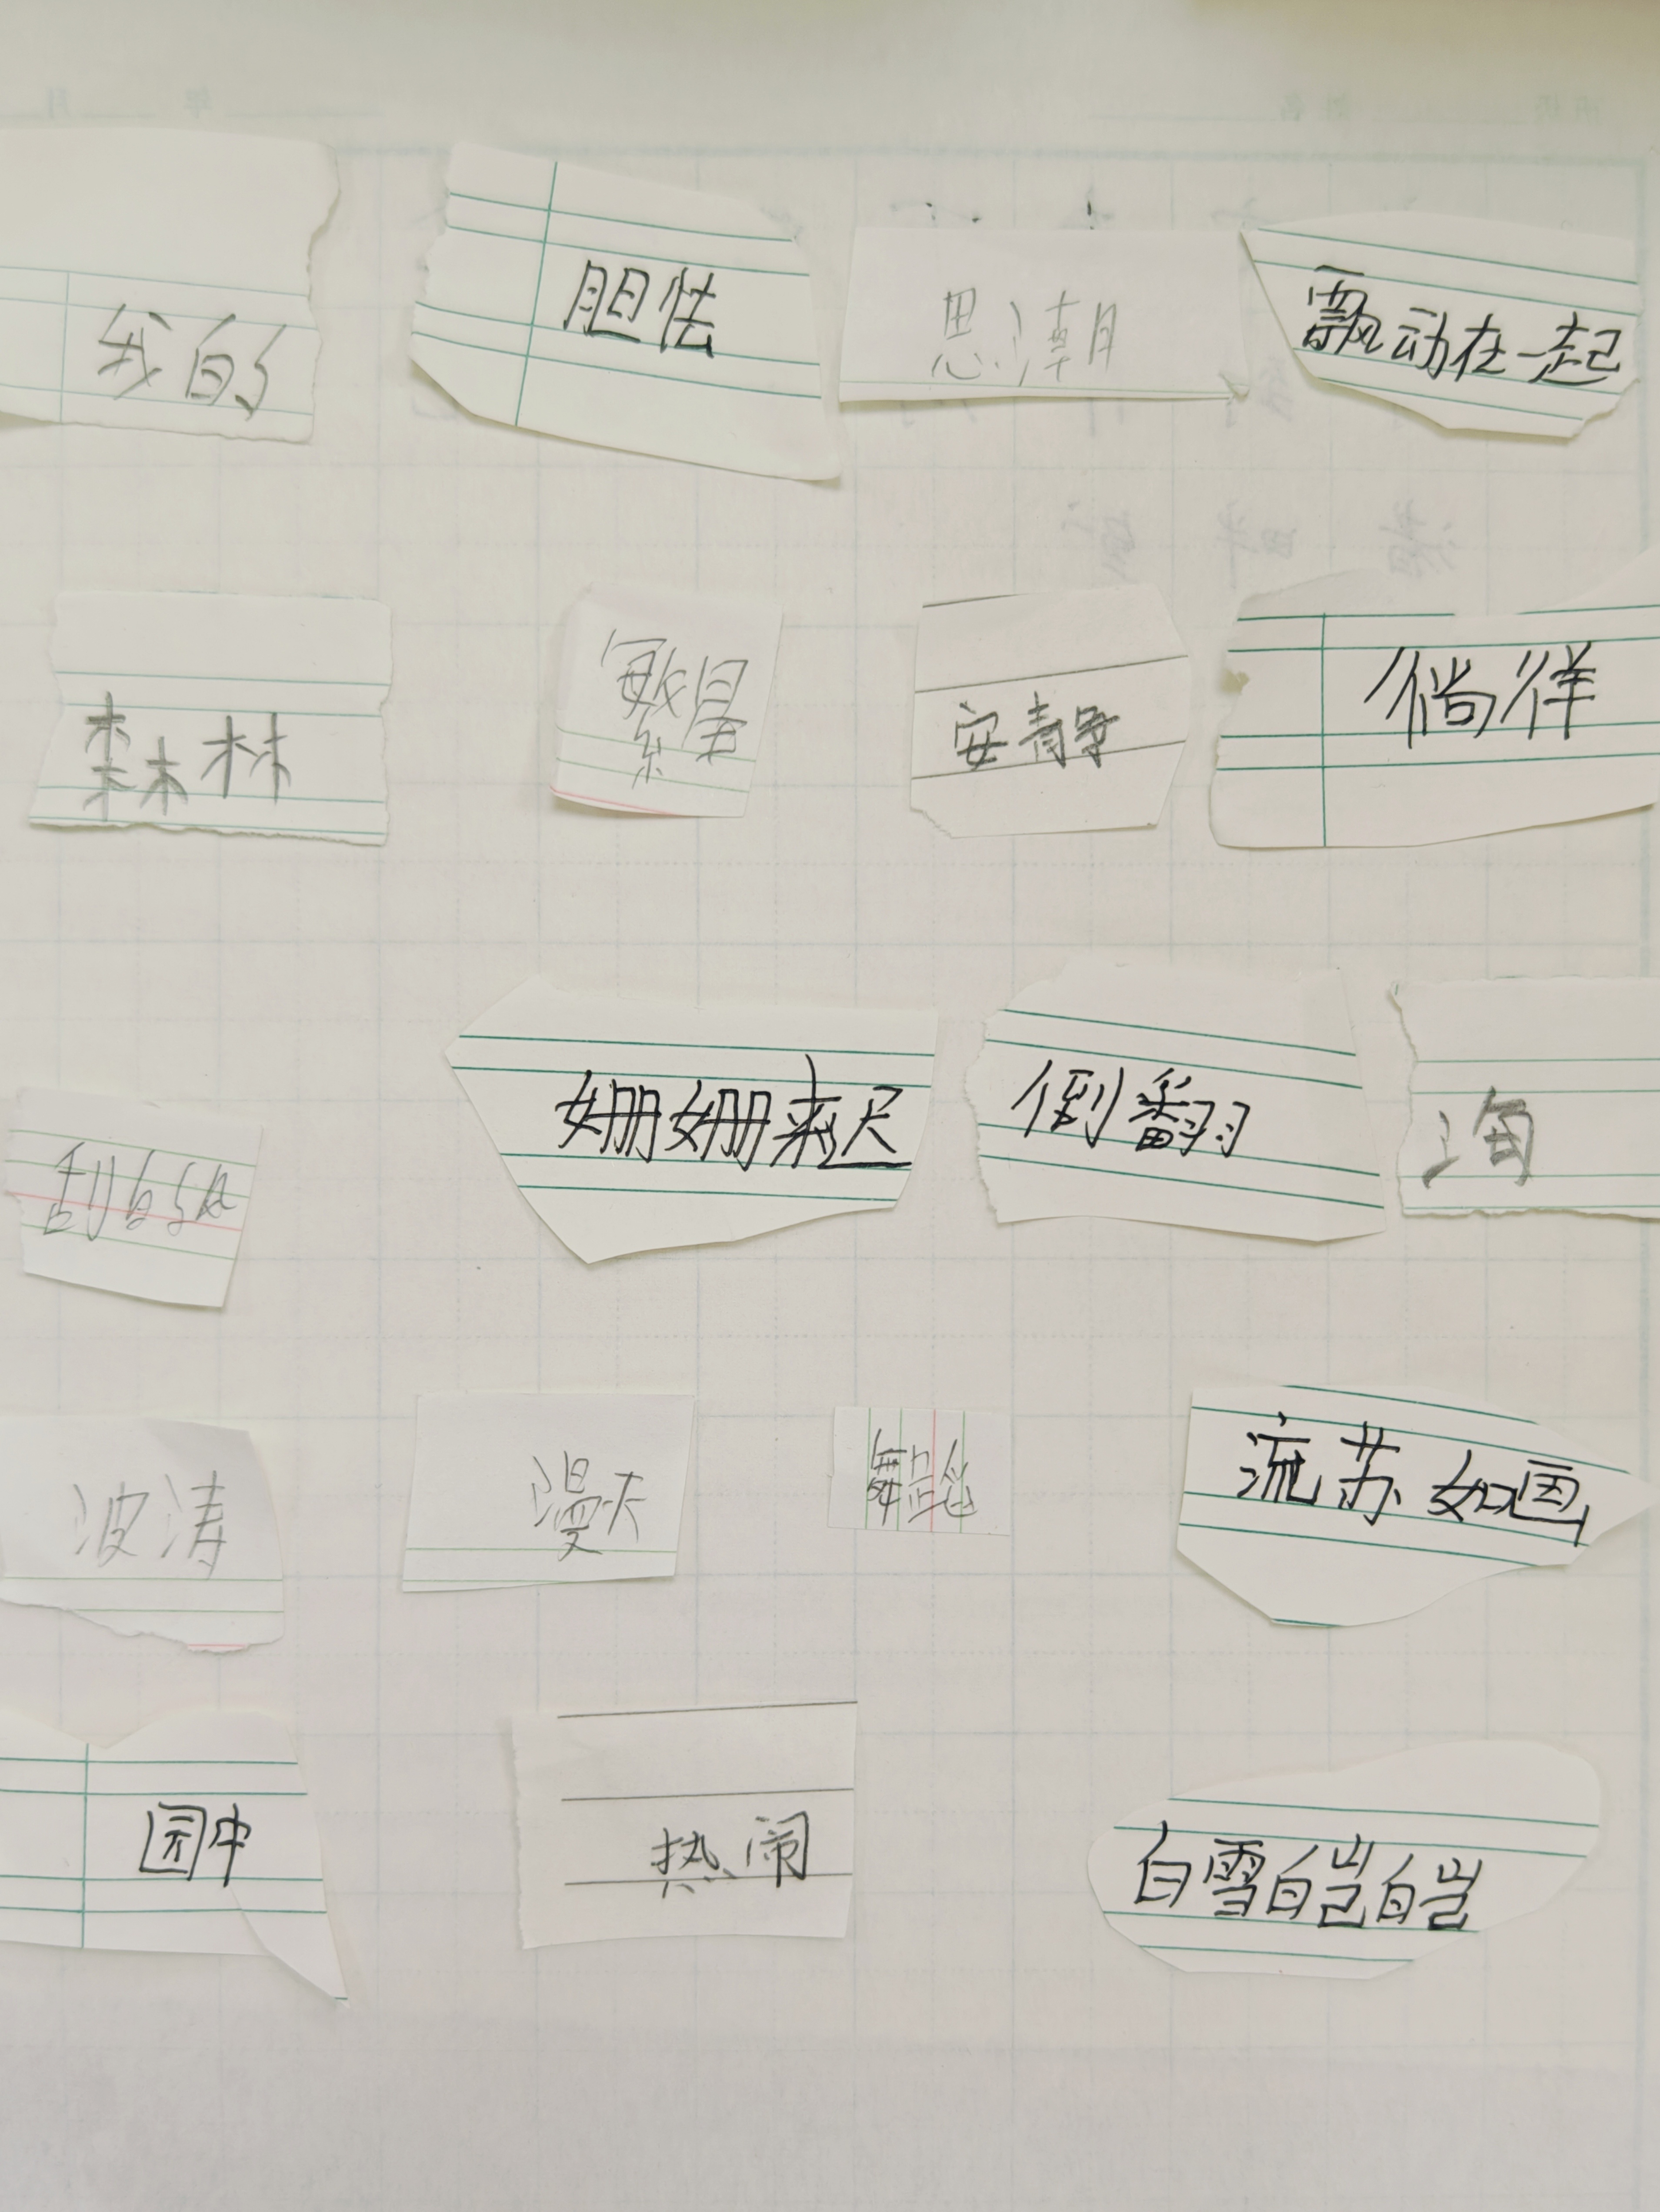 我的
胆怯
思潮
飘动在一起
森林
繁星
安静
徜徉
刮的风
姗姗来迟
倒翻
海
波涛
漫天
舞蹈
流苏如画
园中
热闹
白雪皑皑